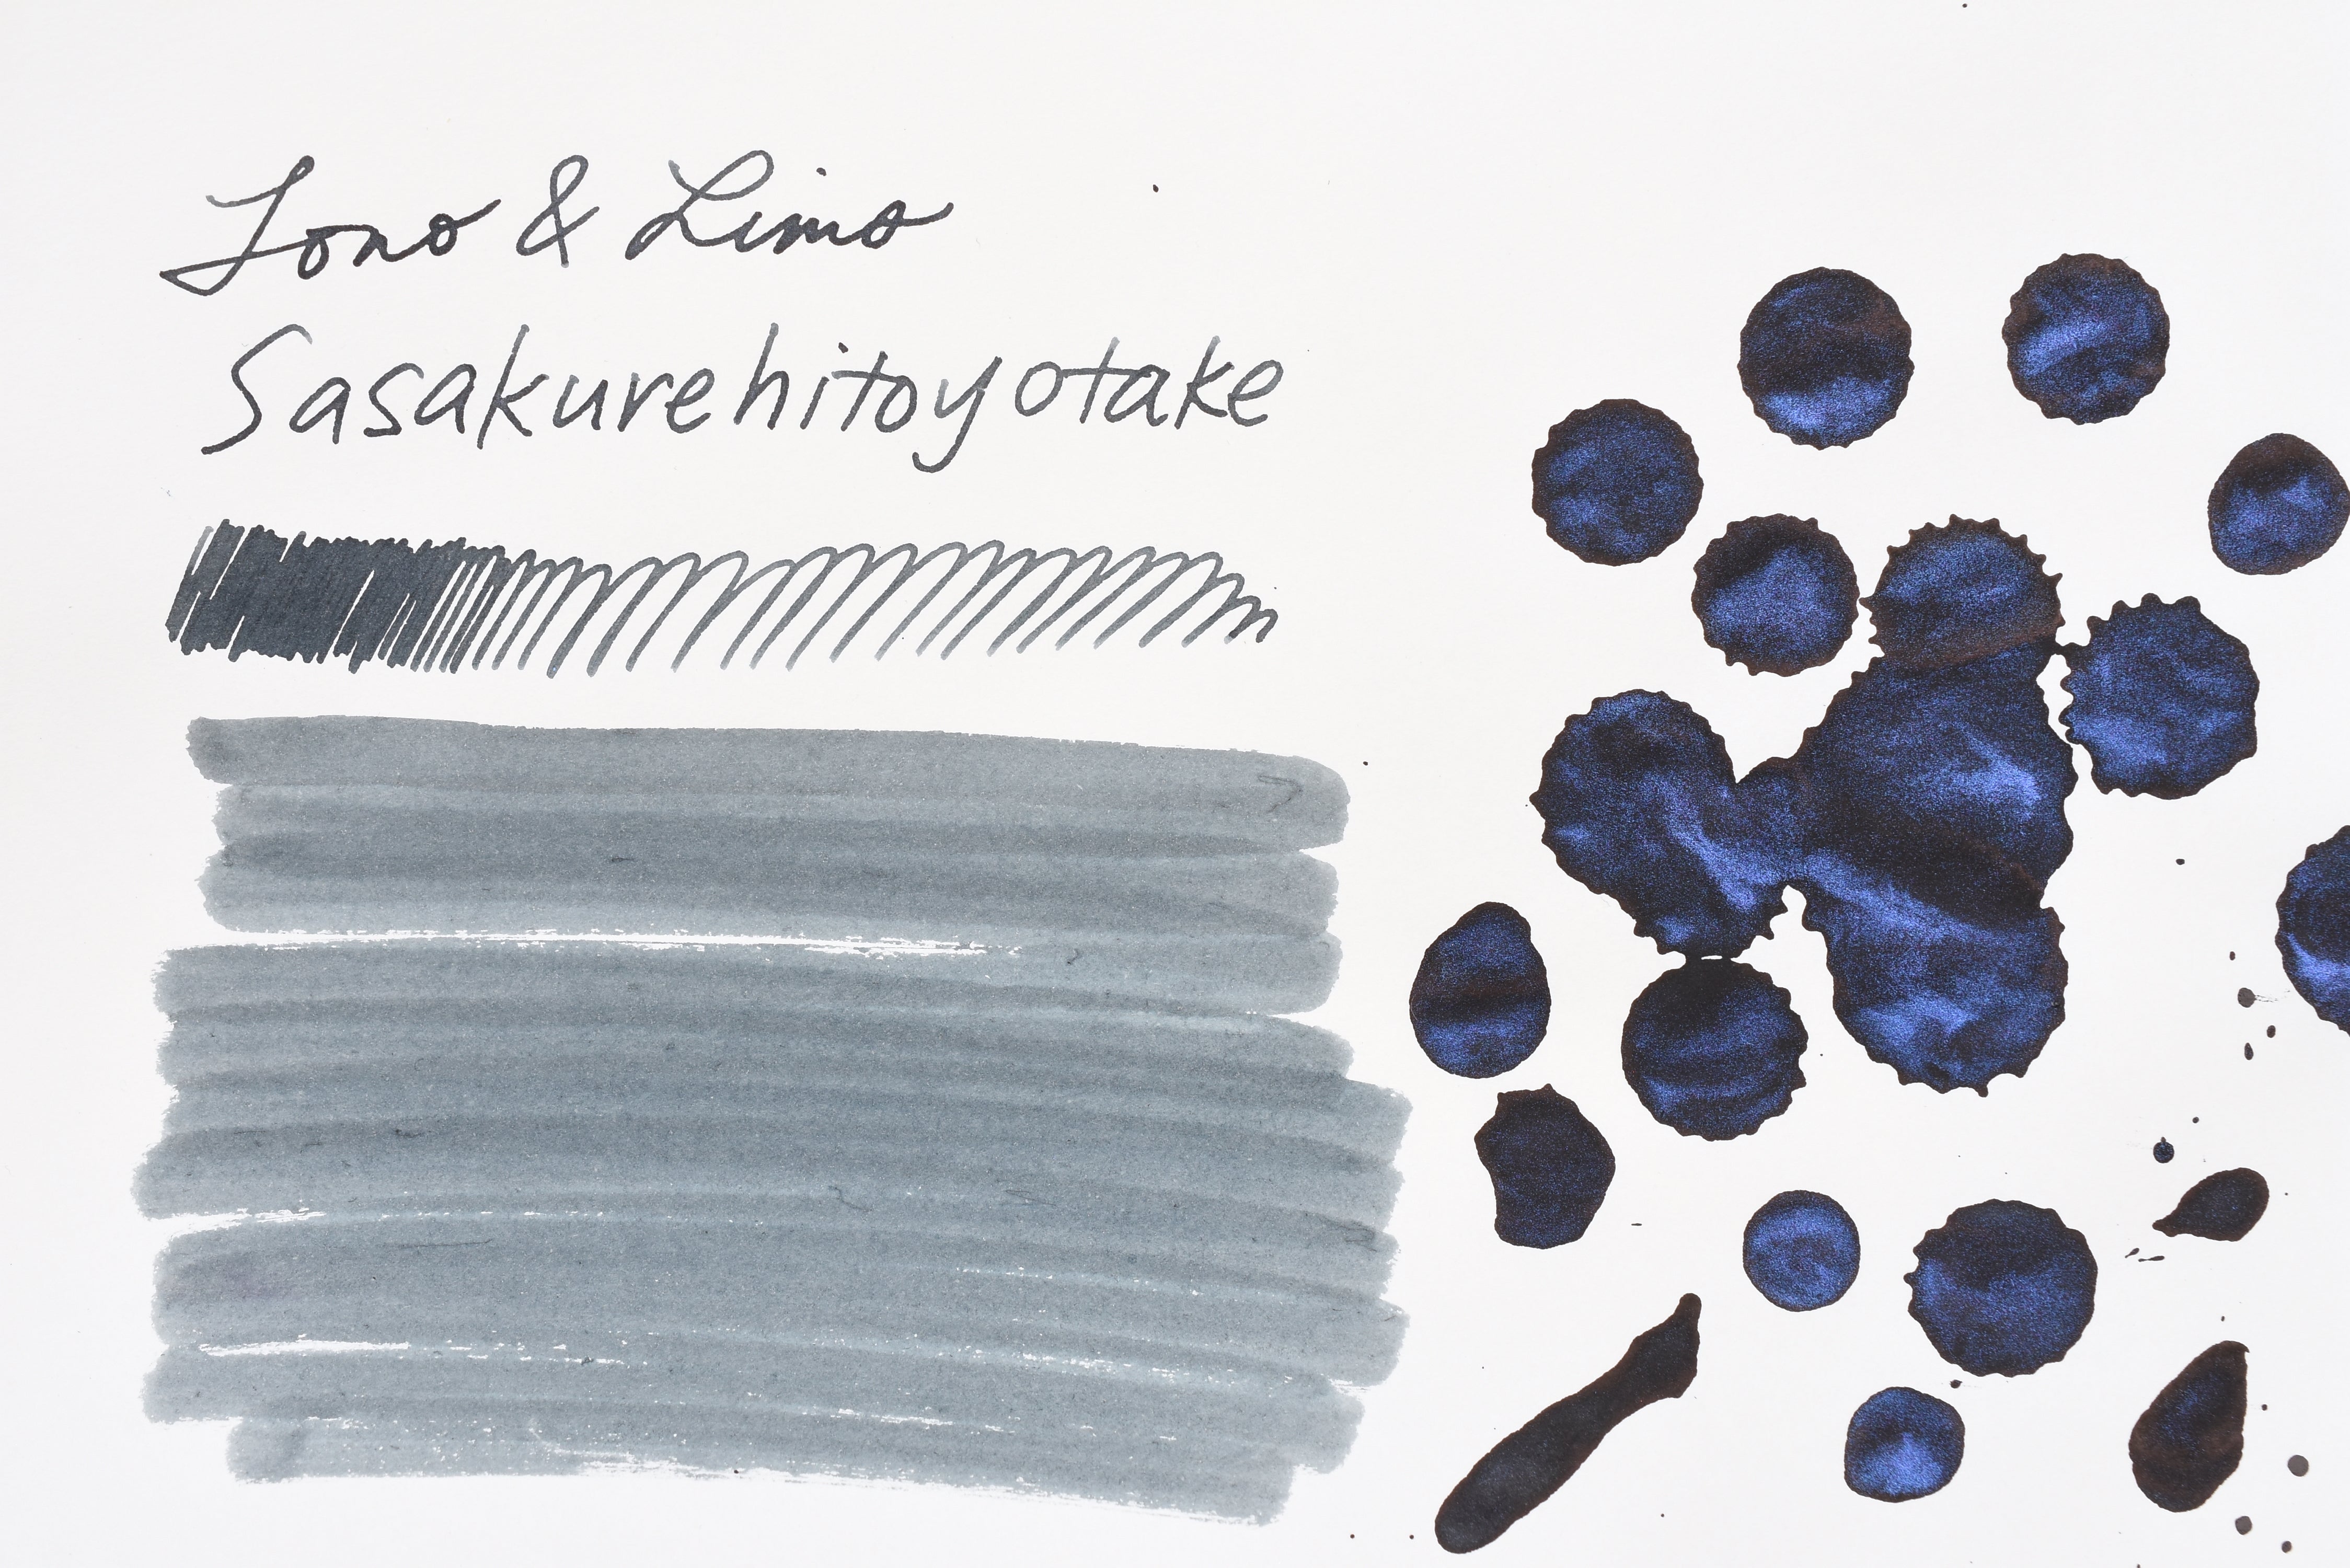 Tono & Lims
Sasakurehitoyotake